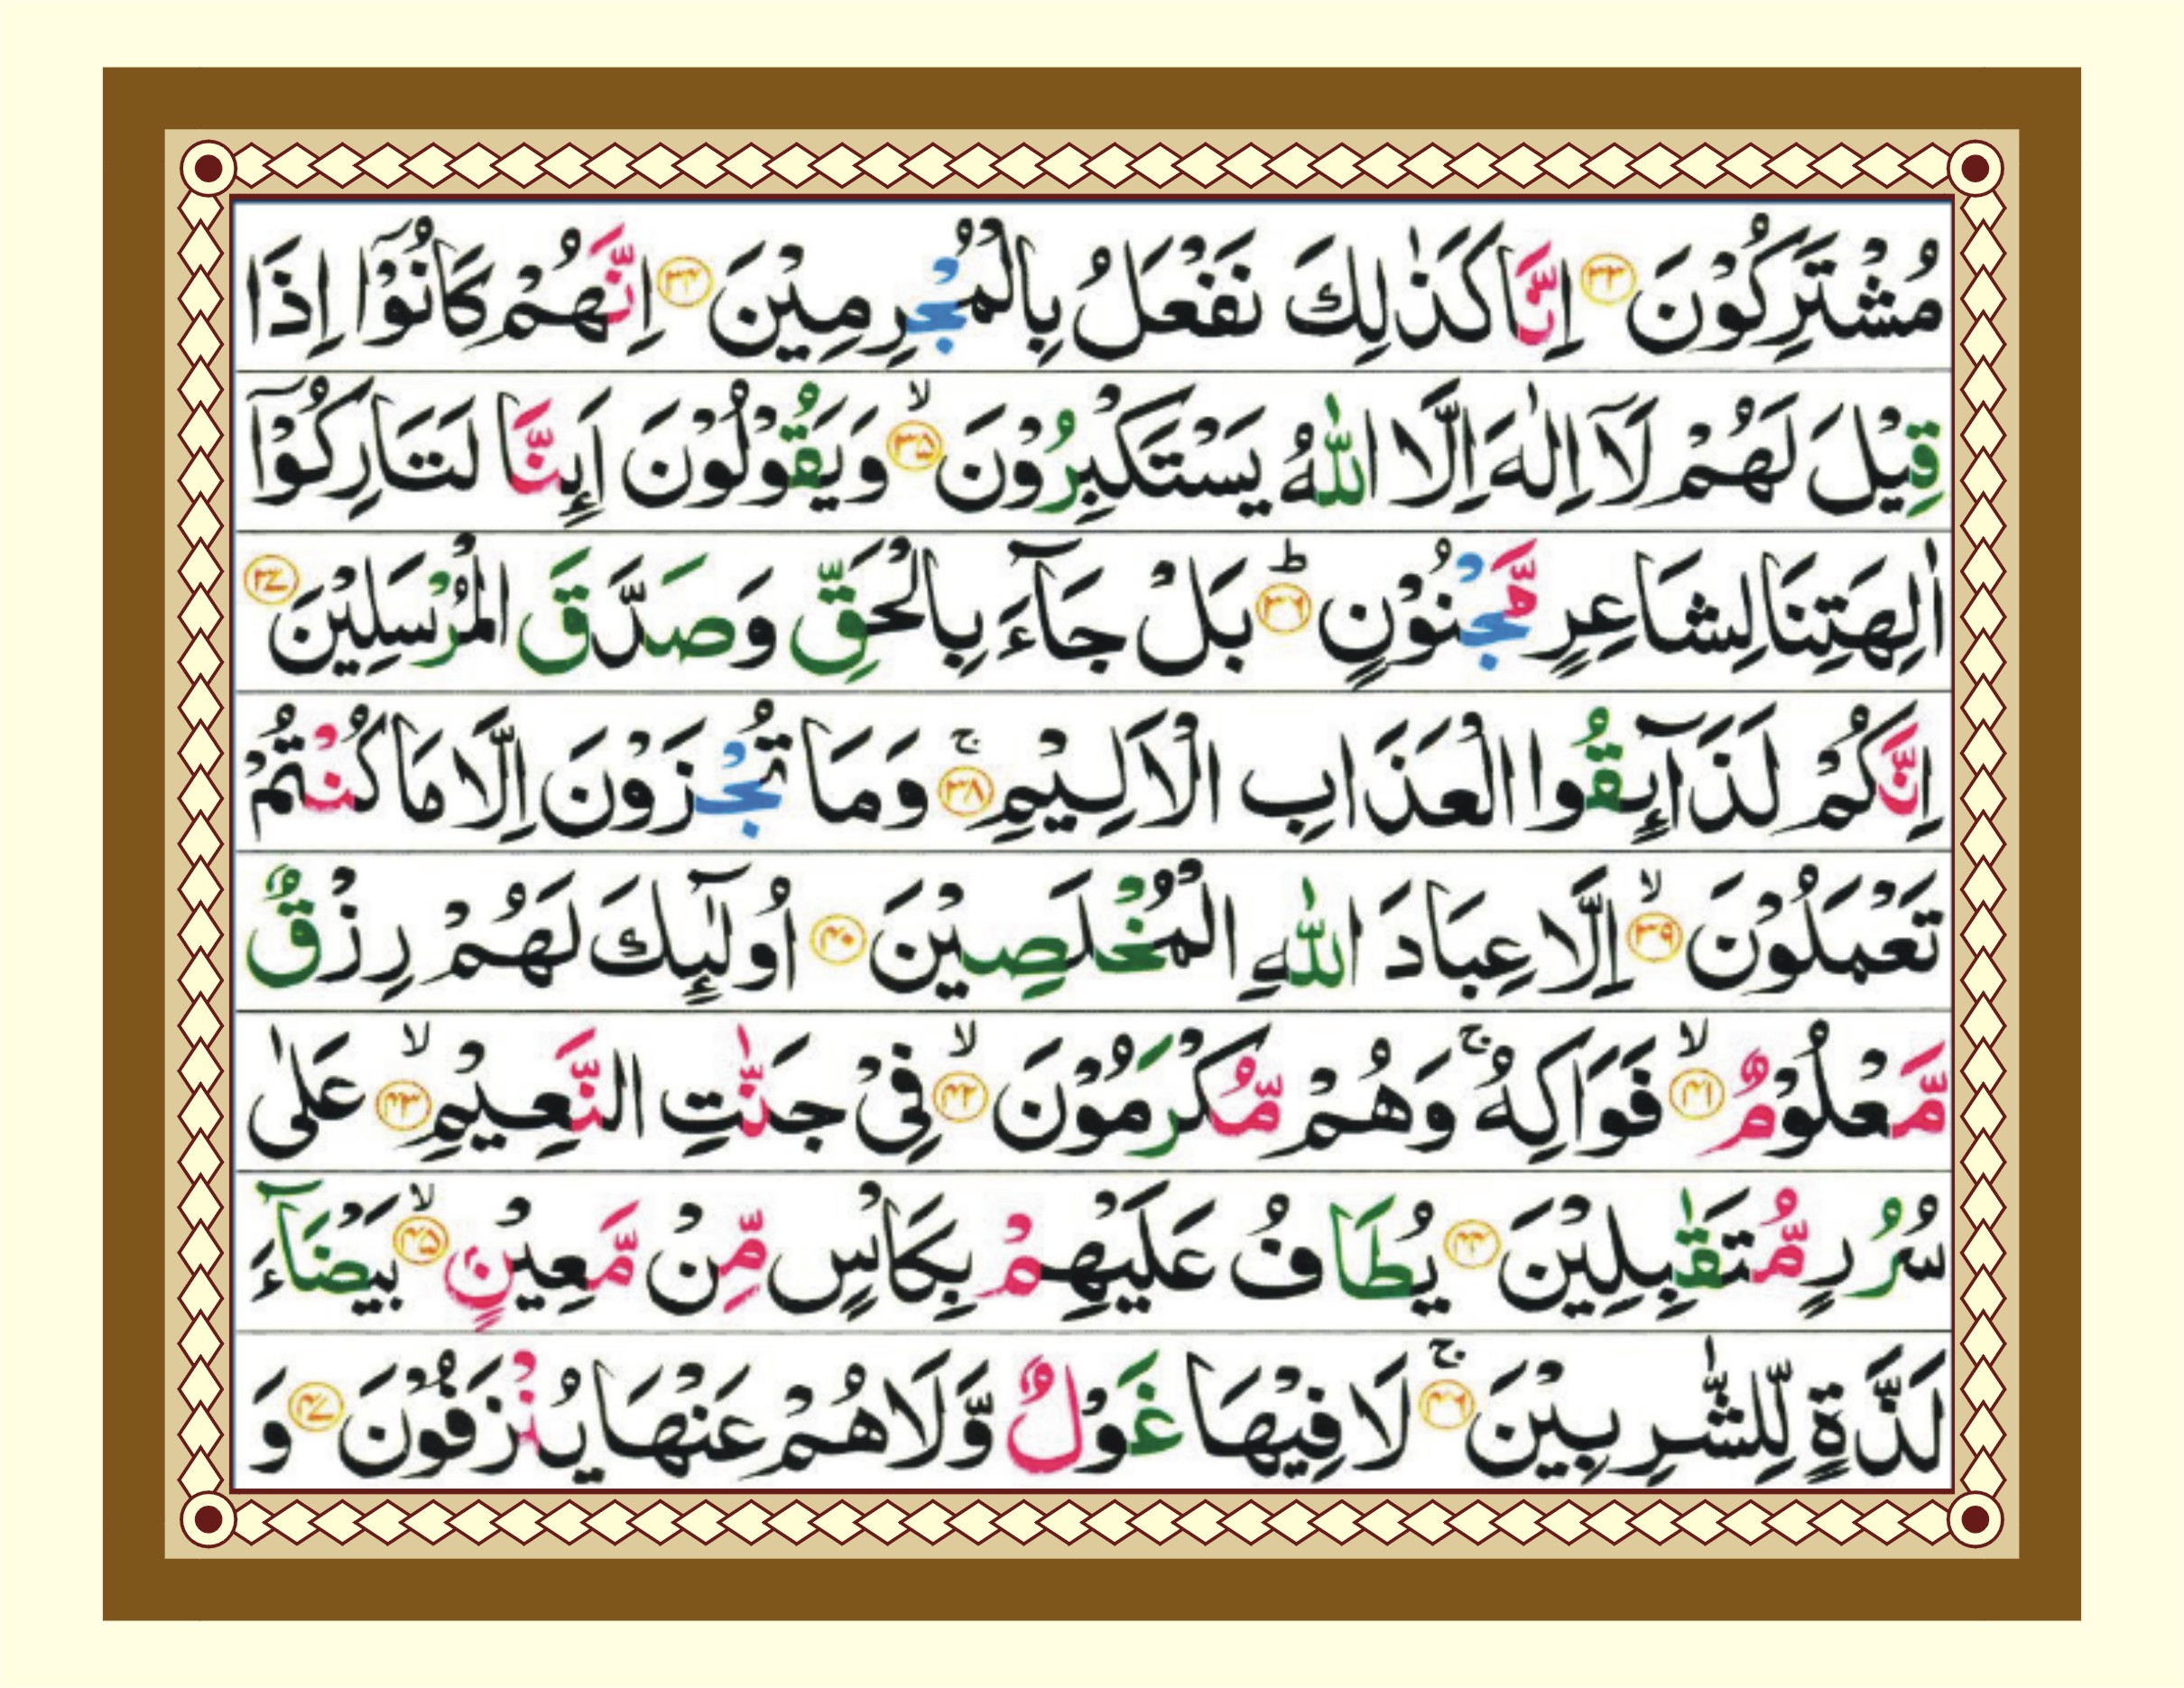 مُشْتَرِكُوْنَ ۳۳ اِنَّا كَذٰلِكَ نَفْعَلُ بِالْمُجْرِمِيْنَ ۳۴ اِنَّهُمْ كَانُوْۤا اِذَا
قِيْلَ لَهُمْ لَاۤ اِلٰهَ اِلَّا اللّٰهُ يَسْتَكْبِرُوْنَ ۙ ۳۵ وَيَقُوْلُوْنَ اَىِٕنَّا لَتَارِكُوْۤا
اٰلِهَتِنَا لِشَاعِرٍ مَّجْنُوْنٍ ؕ ۳۶ بَلْ جَآءَ بِالْحَقِّ وَصَدَّقَ الْمُرْسَلِيْنَ ۳۷
اِنَّكُمْ لَذَآىِٕقُوا الْعَذَابِ الْاَلِيْمِ ۚ ۳۸ وَمَا تُجْزَوْنَ اِلَّا مَا كُنْتُمْ
تَعْمَلُوْنَ ۙ ۳۹ اِلَّا عِبَادَ اللّٰهِ الْمُخْلَصِيْنَ ۴۰ اُولٰٓىِٕكَ لَهُمْ رِزْقٌ
مَّعْلُوْمٌ ۙ ۴۱ فَوَاكِهُ ۚ وَهُمْ مُّكْرَمُوْنَ ۙ ۴۲ فِيْ جَنّٰتِ النَّعِيْمِ ۙ ۴۳ عَلٰى
سُرُرٍ مُّتَقٰبِلِيْنَ ۴۴ يُطَافُ عَلَيْهِمْ بِكَاْسٍ مِّنْ مَّعِيْنٍ ۙ ۴۵ بَيْضَآءَ
لَذَّةٍ لِّلشّٰرِبِيْنَ ۚ ۴۶ لَا فِيْهَا غَوْلٌ وَّلَا هُمْ عَنْهَا يُنْزَفُوْنَ ۴۷ وَ